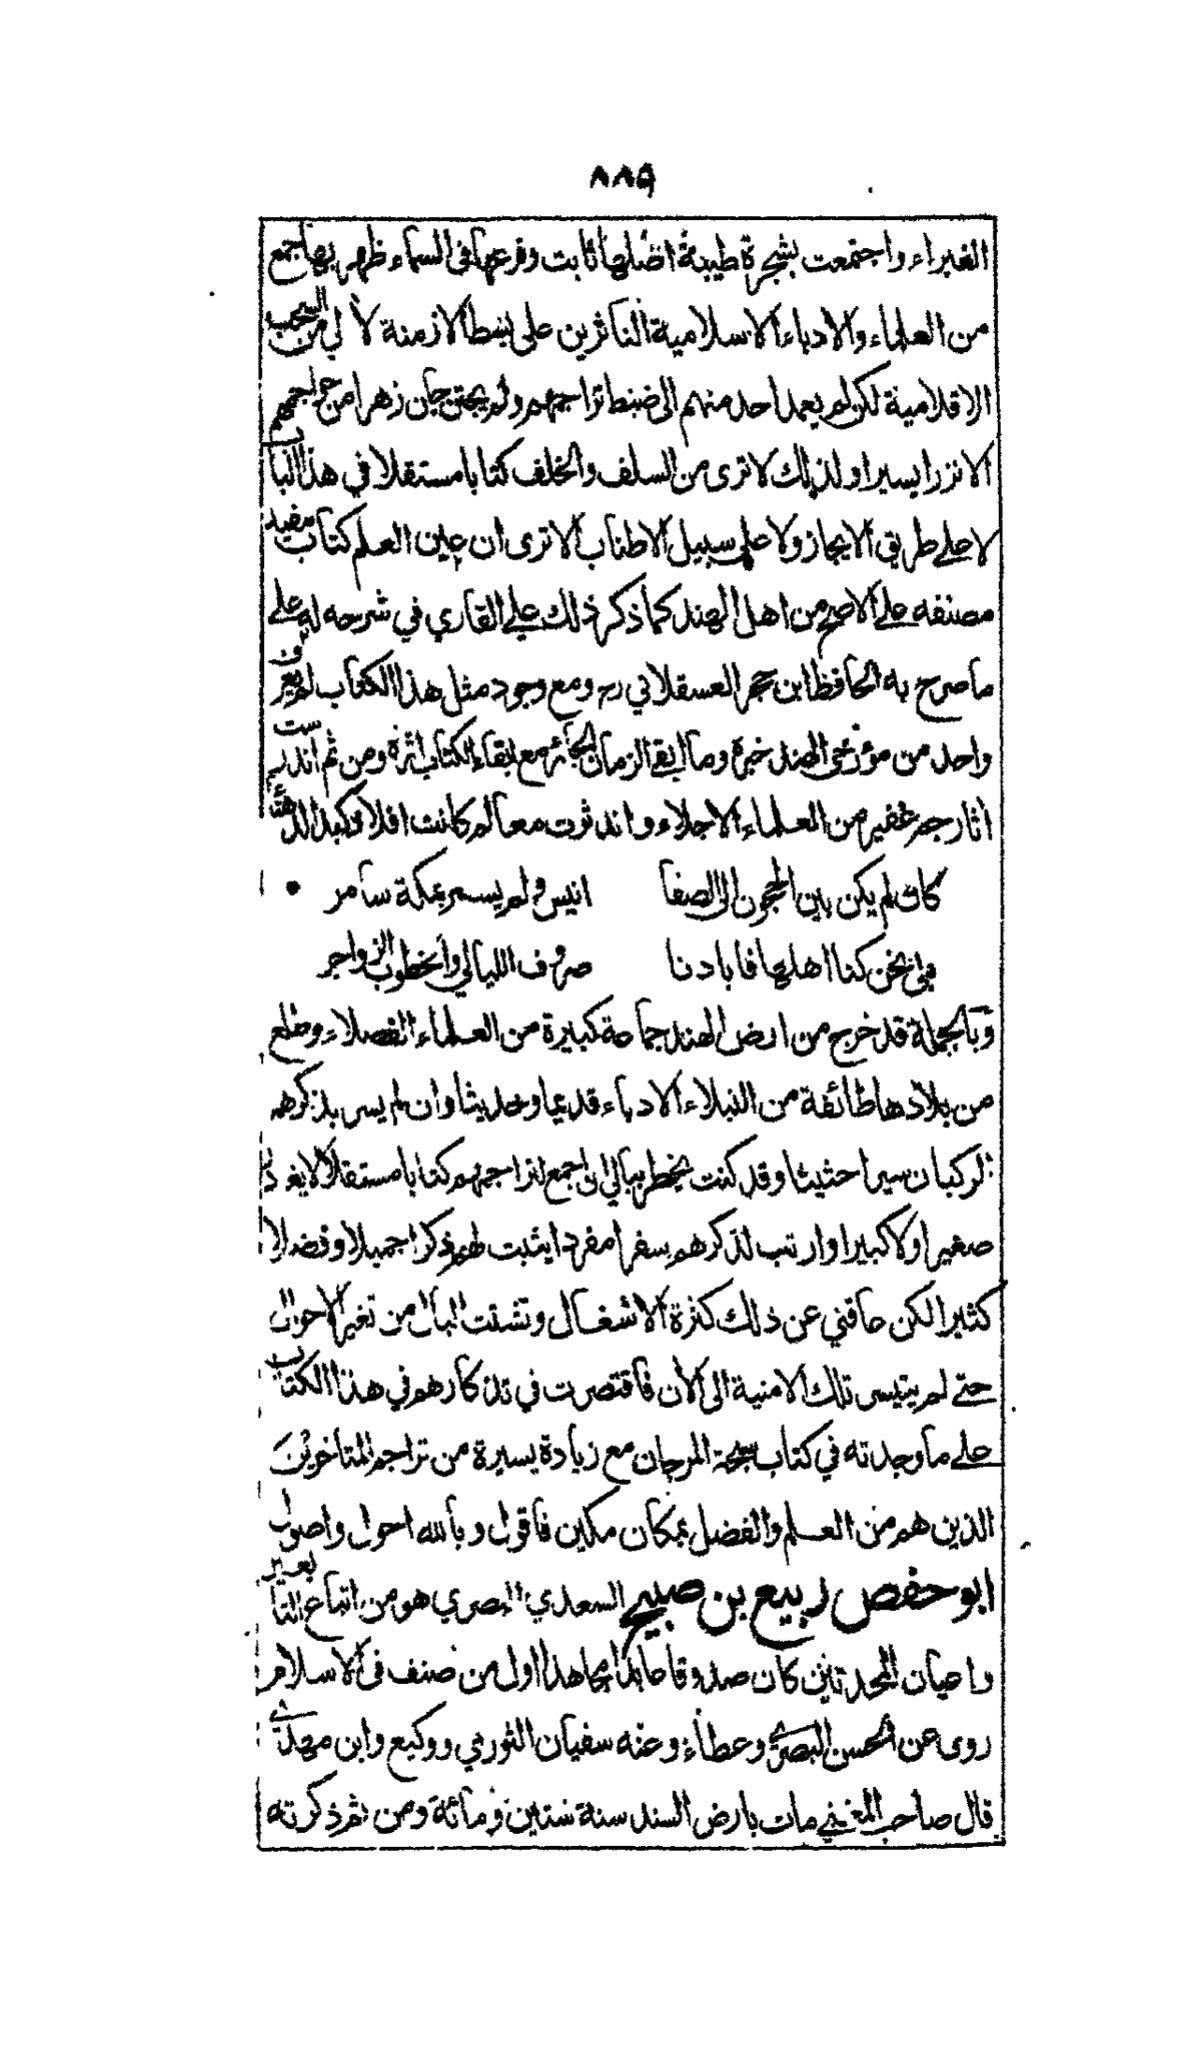 ٨٨٩
الغبراء واجتمعت بشجرة طيبة اصلها ثابت وفرعها فى السماء ظهر بها جمع
من العلماء والادباء الاسلامية الناثرين على بسط الازمنة لألي من السحب
الاقلامية لكن لم يعمد احد منهم الى ضبط تراجمهم ولم يجتن جان زهرا من تراجمهم
الا نزرا يسيرا ولذلك لا ترى من السلف والخلف كتابا مستقلا في هذا الباب
لا على طريق الايجاز ولا على سبيل الاطناب الا ترى ان عين العلم كتاب مفيد
مصنفه على الاصح من اهل الهند كما ذكر ذلك علي القاري في شرحه له على
ما صرح به الحافظ ابن حجر العسقلاني رح ومع وجود مثل هذا الكتاب لم يعرف
واحد من مؤرخى الهند خبره وما ابقى الزمان الجائر مع بقاء الكتاب اثره ومن ثم اندرست
اثار جم غفير من العلماء الاجلاء واندثرت معالم كانت افلاذ كبد الدهناء
كان لم يكن بين الحجون الى الصفا انيس ولم يسمر بمكة سامر
بلى نحن كنا اهلها فابادنا صروف الليالي والخطوب الزواجر
وبالجملة قد خرج من ارض الهند جماعة كبيرة من العلماء الفضلاء وطلع
من بلادها طائفة من النبلاء الادباء قديما وحديثا وان لم يسر بذكرهم
الركبان سيرا حثيثا وقد كنت يخطر ببالي ان اجمع لتراجمهم كتابا مستقلا لا يغادر
صغيرا ولا كبيرا وارتب لذكرهم سفرا مفردا يثبت لهم ذكرا جميلا وفضلا
كثيرا لكن عاقني عن ذلك كثرة الاشغال وتشتت البال من تغير الاحوال
حتى لم يتيسر تلك الامنية الى الأن فاقتصرت في تذكارهم في هذا الكتاب
على ما وجدته في كتاب سبحة المرجان مع زيادة يسيرة من تراجم المتأخرين
الذين هم من العلم والفضل بمكان مكين فاقول وبالله احول واصول
ابو حفص ربيع بن صبيح السعدي البصري هو من اتباع التابعين
واعيان المحدثين كان صدوقا عابدا مجاهدا اول من صنف فى الاسلام
روى عن الحسن البصري وعطاء وعنه سفيان الثوري ووكيع وابن مهدي
قال صاحب المغني مات بارض السند سنة ستين ومائة ومن ثم ذكرته